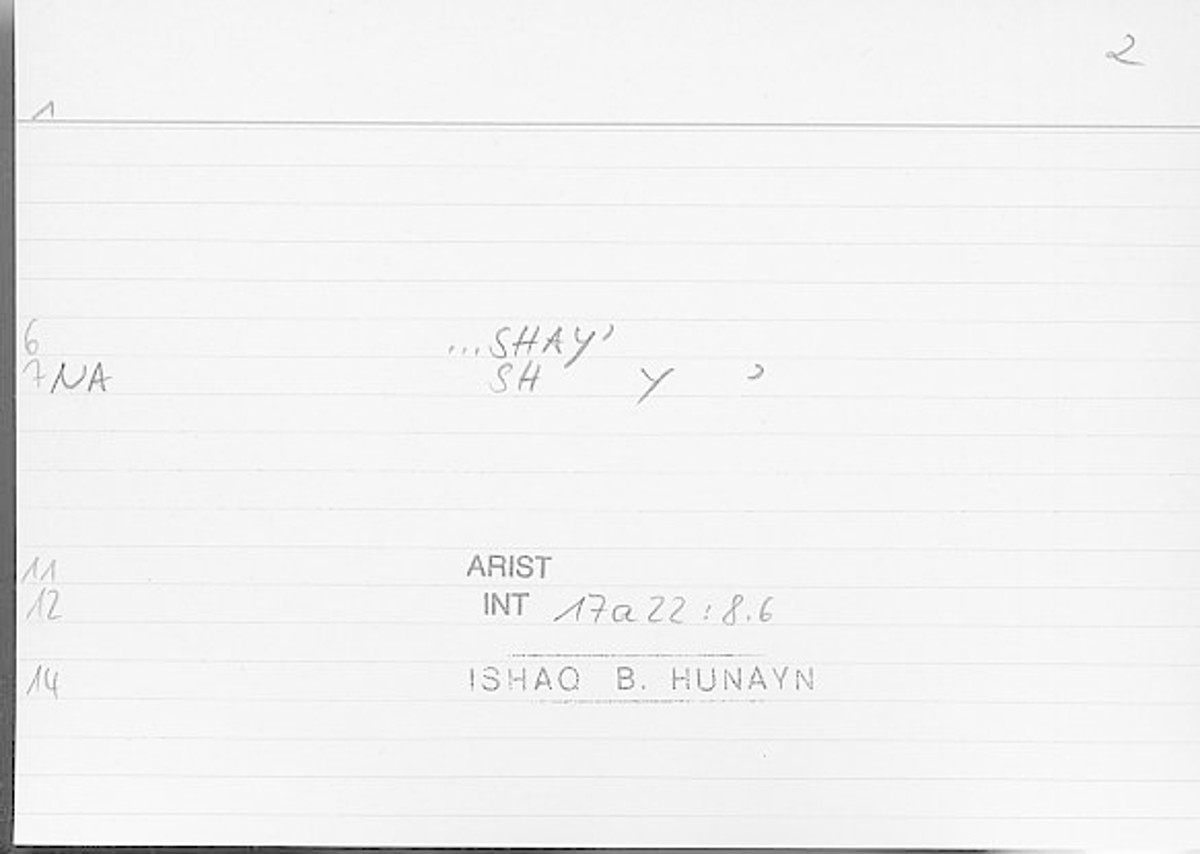 2
1
6 ...SHAY'
7 NA SH Y '
11 ARIST
12 INT 17a22:8.6
14 ISHAQ B. HUNAYN